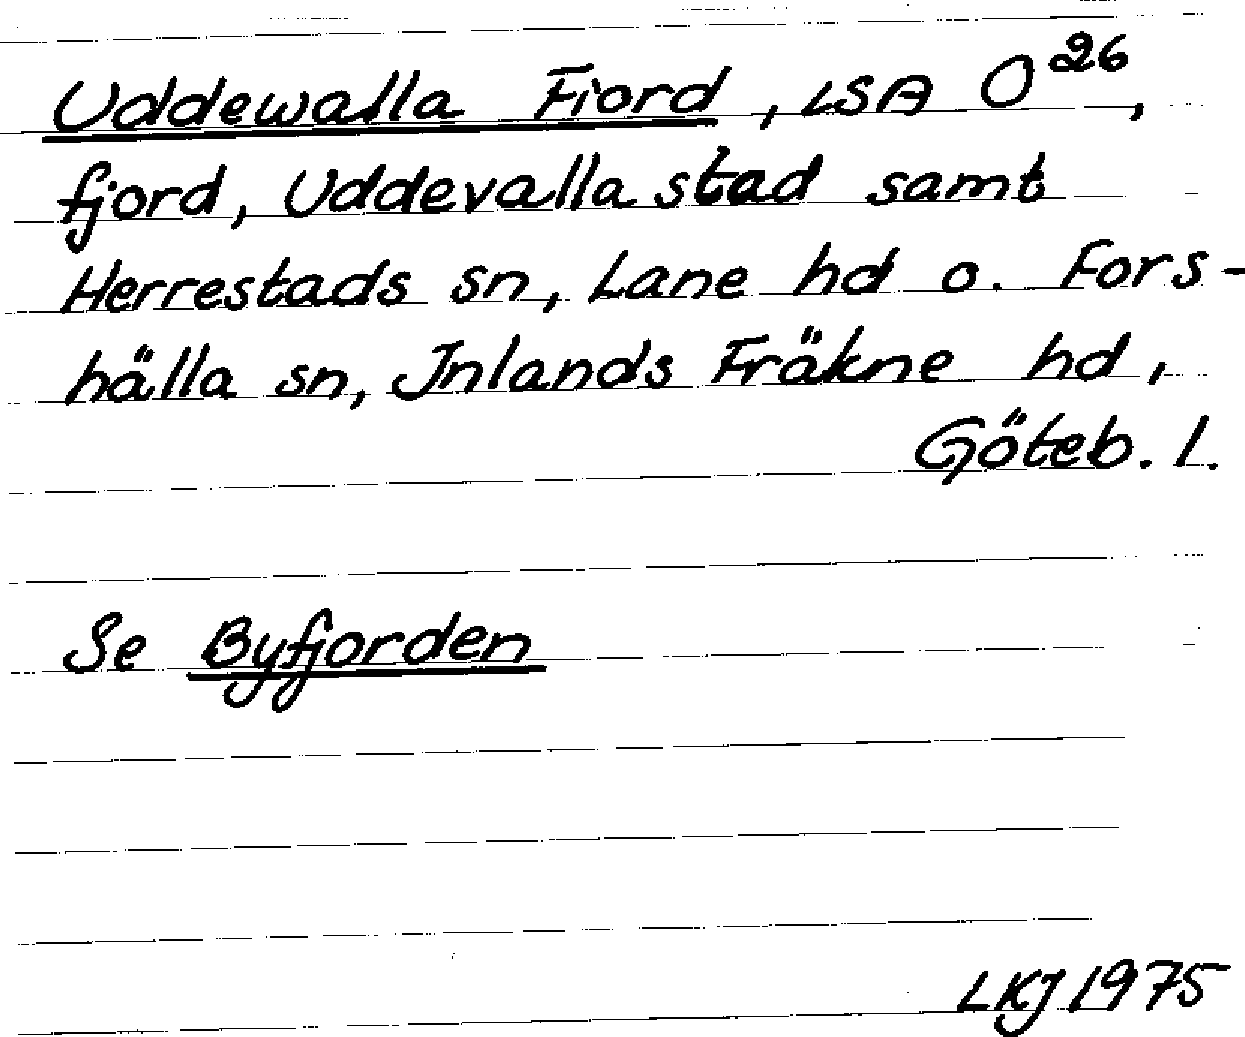 Uddewalla Fiord, LSA O 26,
fjord, Uddevalla stad samt
Herrestads sn, Lane hd o. Fors-
hälla sn, Inlands Fräkne hd,
Göteb. l.
Se Byfjorden
LKJ 1975